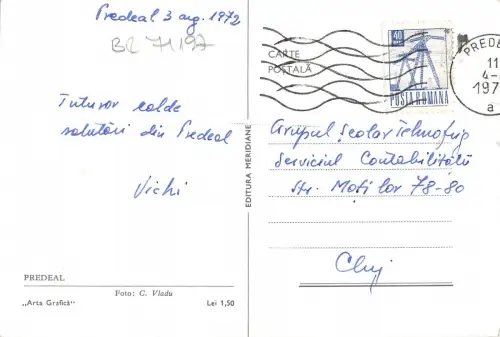 Predeal 3 aug. 1972
BL 71197
Tuturor calde
salutări din Predeal
Vichi
PREDEAL
Foto: C. Vladu
„Arta Grafică"
Lei 1,50
EDITURA MERIDIANE
CARTE
POȘTALĂ
40
POSTA ROMANA
PREDE
11
4-
197
a
Grupul Școlar Tehnofrig
Serviciul Contabilitate
Str. Moților 78-80
Cluj